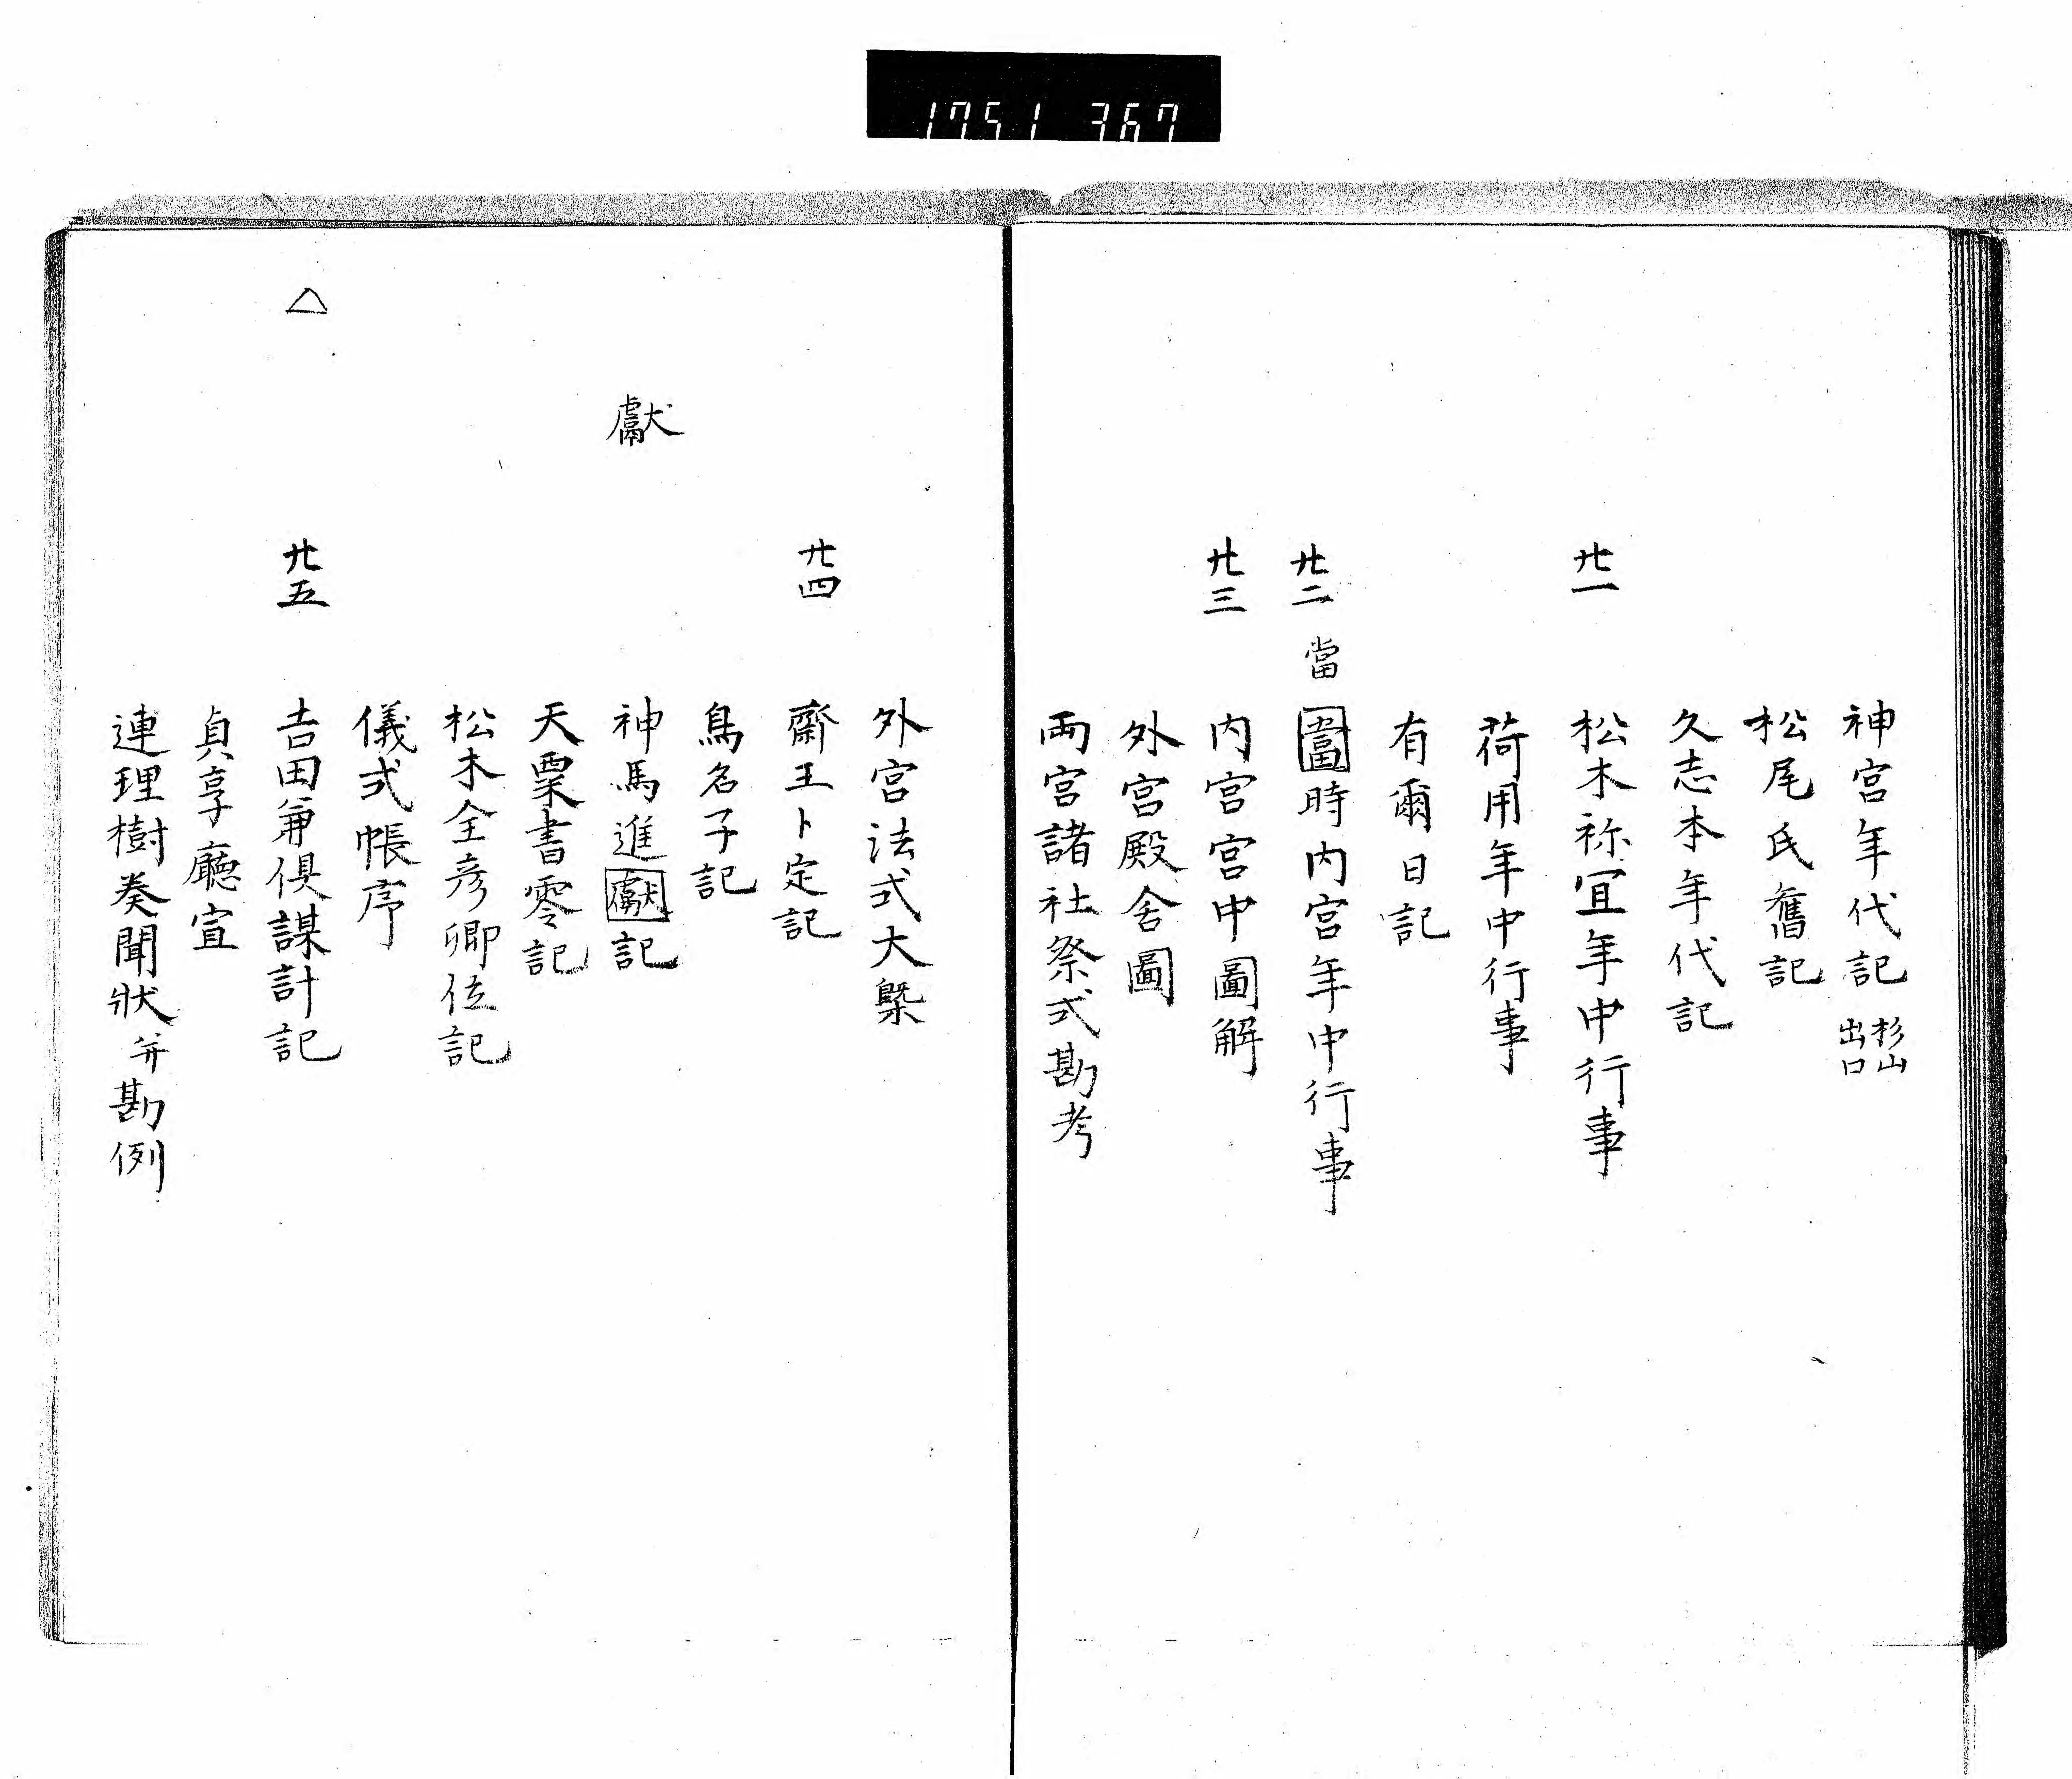 1751 367
神宮年代記 杉山 出口
松尾氏舊記
久志本年代記
廿一 松木祢宜年中行事
荷用年中行事
有爾日記
廿二 當 當時内宮年中行事
廿三 内宮宮中圖解
外宮殿舍圖
兩宮諸社祭式勘考
外宮法式大槩
廿四 齋王卜定記
鳥名子記
獻 神馬進獻記
天粟書零記
松木全彦卿位記
儀式帳序
△ 廿五 吉田兼倶謀計記
貞享廳宣
連理樹奏聞狀并勘例